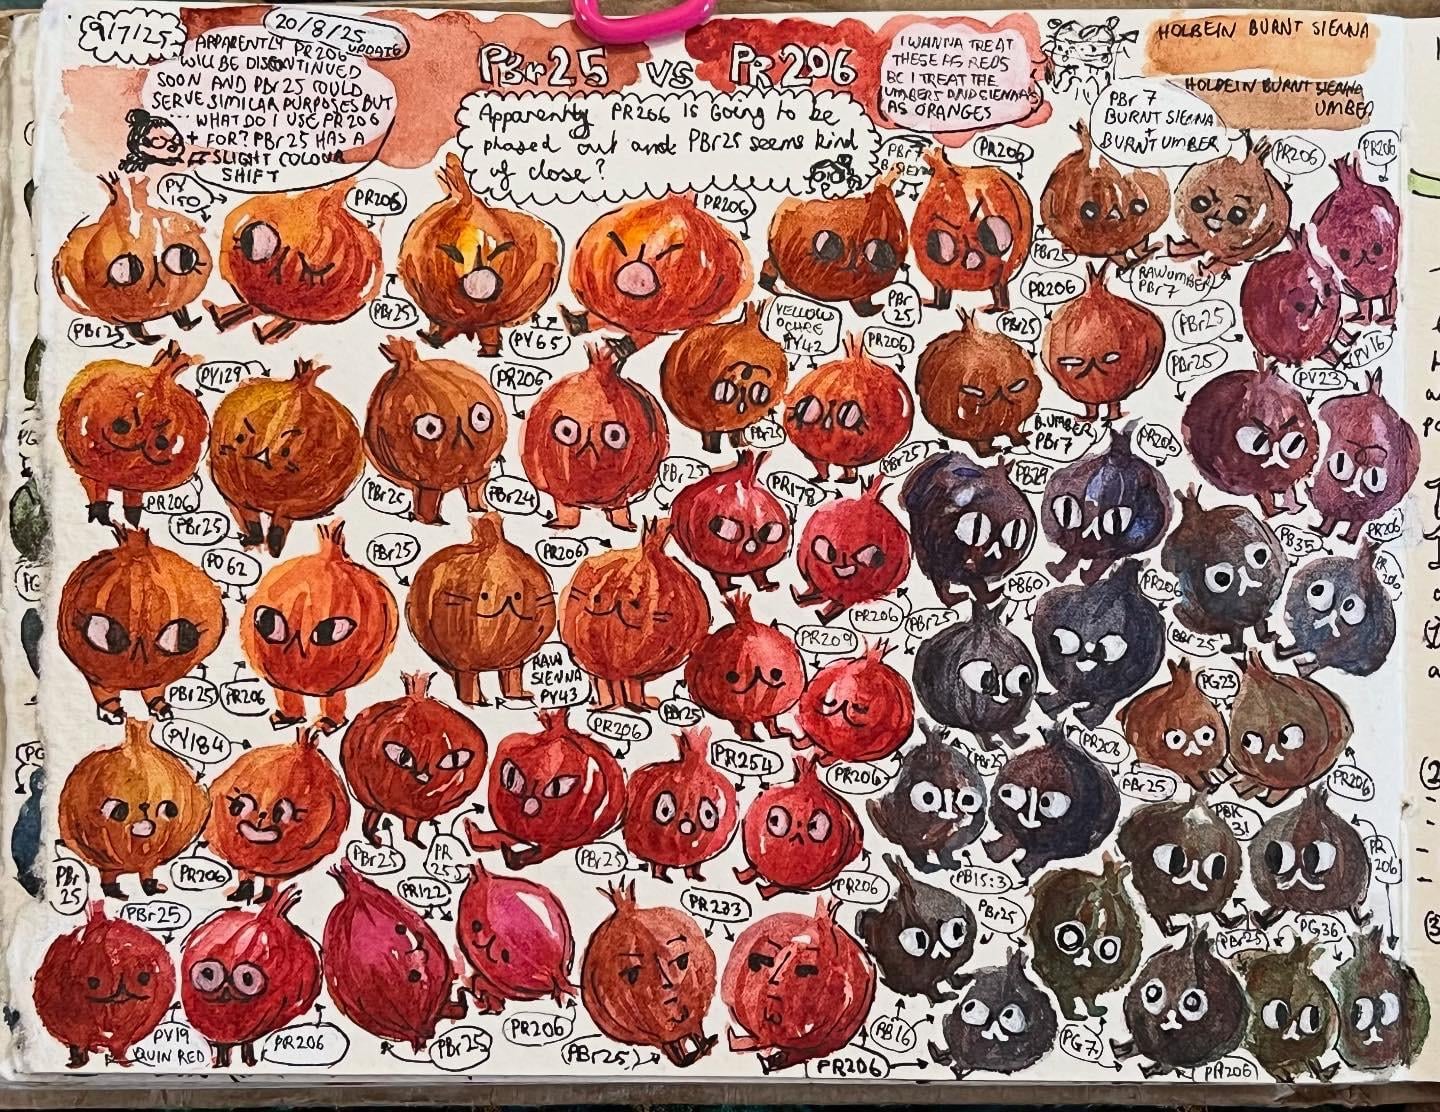 9/7/25
20/8/25
UPDATE
APPARENTLY PR206
WILL BE DISCONTINUED
SOON AND PBr25 COULD
SERVE SIMILAR PURPOSES BUT
... WHAT DO I USE PR206
FOR? PBr25 HAS A
SLIGHT COLOUR
SHIFT
PBr25 vs PR206
Apparently PR206 is going to be
phased out and PBr25 seems kind
of close?
I WANNA TREAT
THESE AS REDS
BC I TREAT THE
UMBERS AND SIENNAS
AS ORANGES
HOLBEIN BURNT SIENNA
HOLBEIN BURNT SIENNA
UMBER
PBr7
BURNT SIENNA
+
BURNT UMBER
PY
150
PR206
PR206
PBr7
B. SIENNA
PR206
PR206
PR206
PBr25
PBr25
PY65
PBr
25
PBr25
RAW UMBER
PBr7
PBr25
PV16
PY129
PR206
YELLOW
OCHRE
PY42
PR206
PBr25
PR206
PBr25
PV23
PR206
PBr25
PBr25
PBr24
PBr25
PBr25
PR178
PBr25
B.UMBER
PBr7
PB29
PR206
PR206
PO62
PBr25
PR206
PR206
PBr25
PB60
PR206
PB35
PR
206
PBr25
PBr25
PR206
RAW
SIENNA
PY43
PR206
PBr25
PR209
PR206
PG23
PBr25
PR206
PY184
PBr
25
PR206
PBr25
PR
255
PR254
PBr25
PR206
PBr25
PR206
PB15:3
PBK
31
PR
206
PBr25
PV19
QUIN RED
PR206
PR122
PBr25
PR206
PR233
PBr25
PR206
PBr25
PB16
PG7
PBr25
PG36
PR206